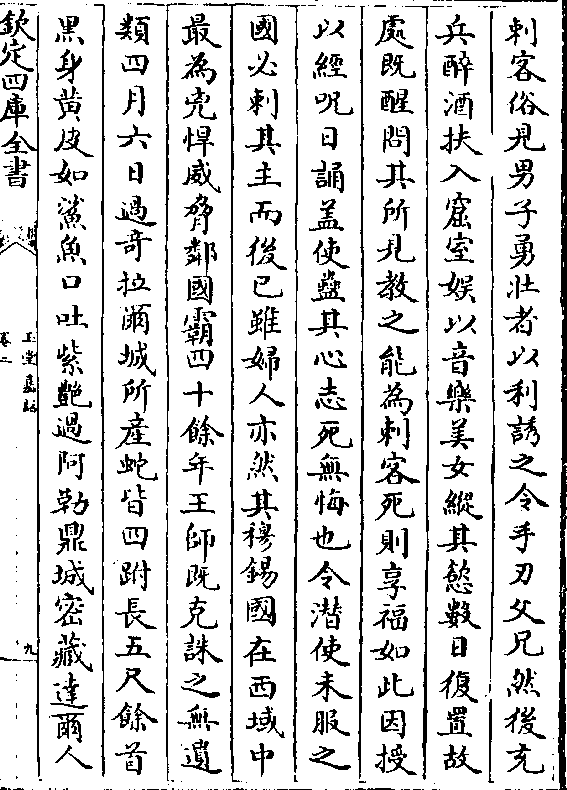 刺客俗見男子勇壯者以利誘之令手刃父兄然後充
兵醉酒扶入窟室娛以音樂美女縱其慾數日復置故
處既醒問其所見教之能為刺客死則享福如此因授
以經呪日誦蓋使蠱其心志死無悔也令潛使未服之
國必刺其主而後已雖婦人亦然其穆錫國在西域中
最為兇悍威脅鄰國霸四十餘年王師既克誅之無遺
類四月六日過竒拉爾城所産蛇皆四跗長五尺餘首
黒身黄皮如鯊魚口吐紫艷過阿勒鼎城密藏達爾人
欽定四庫全書
玉堂嘉話
卷二
九